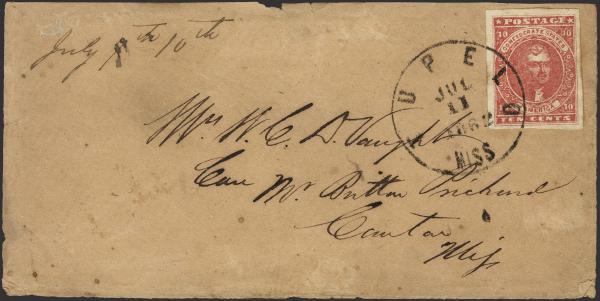 July 10th
POSTAGE
CONFEDERATE STATES
10 10
AMERICA
10 10
TEN CENTS
TUPELO
JUL
11
1862
MISS
Mrs W. C. D. Vaughn
Care Mr Button Prichard
Canton
Miss